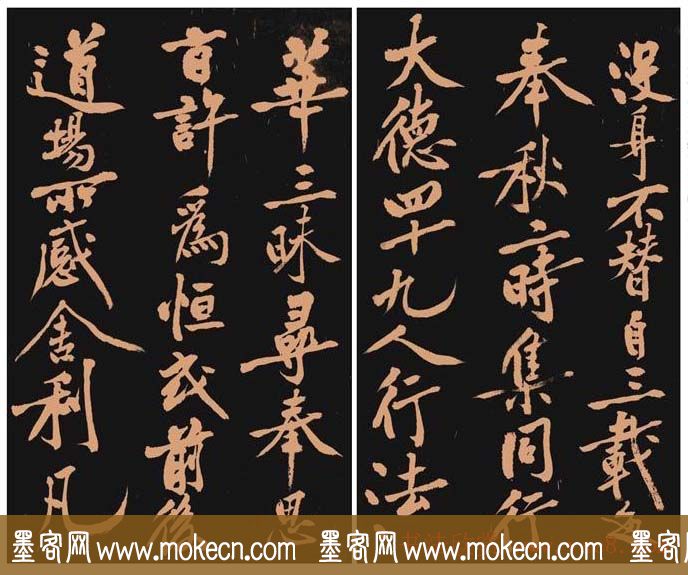 没身不替自三載每
奉秋二時集同行
大德四十九人行法
華三昧尋奉恩
旨許爲恒式前後
道場所感舍利凡
墨客网 www.mokecn.com 墨客网 www.mokecn.com 墨客网